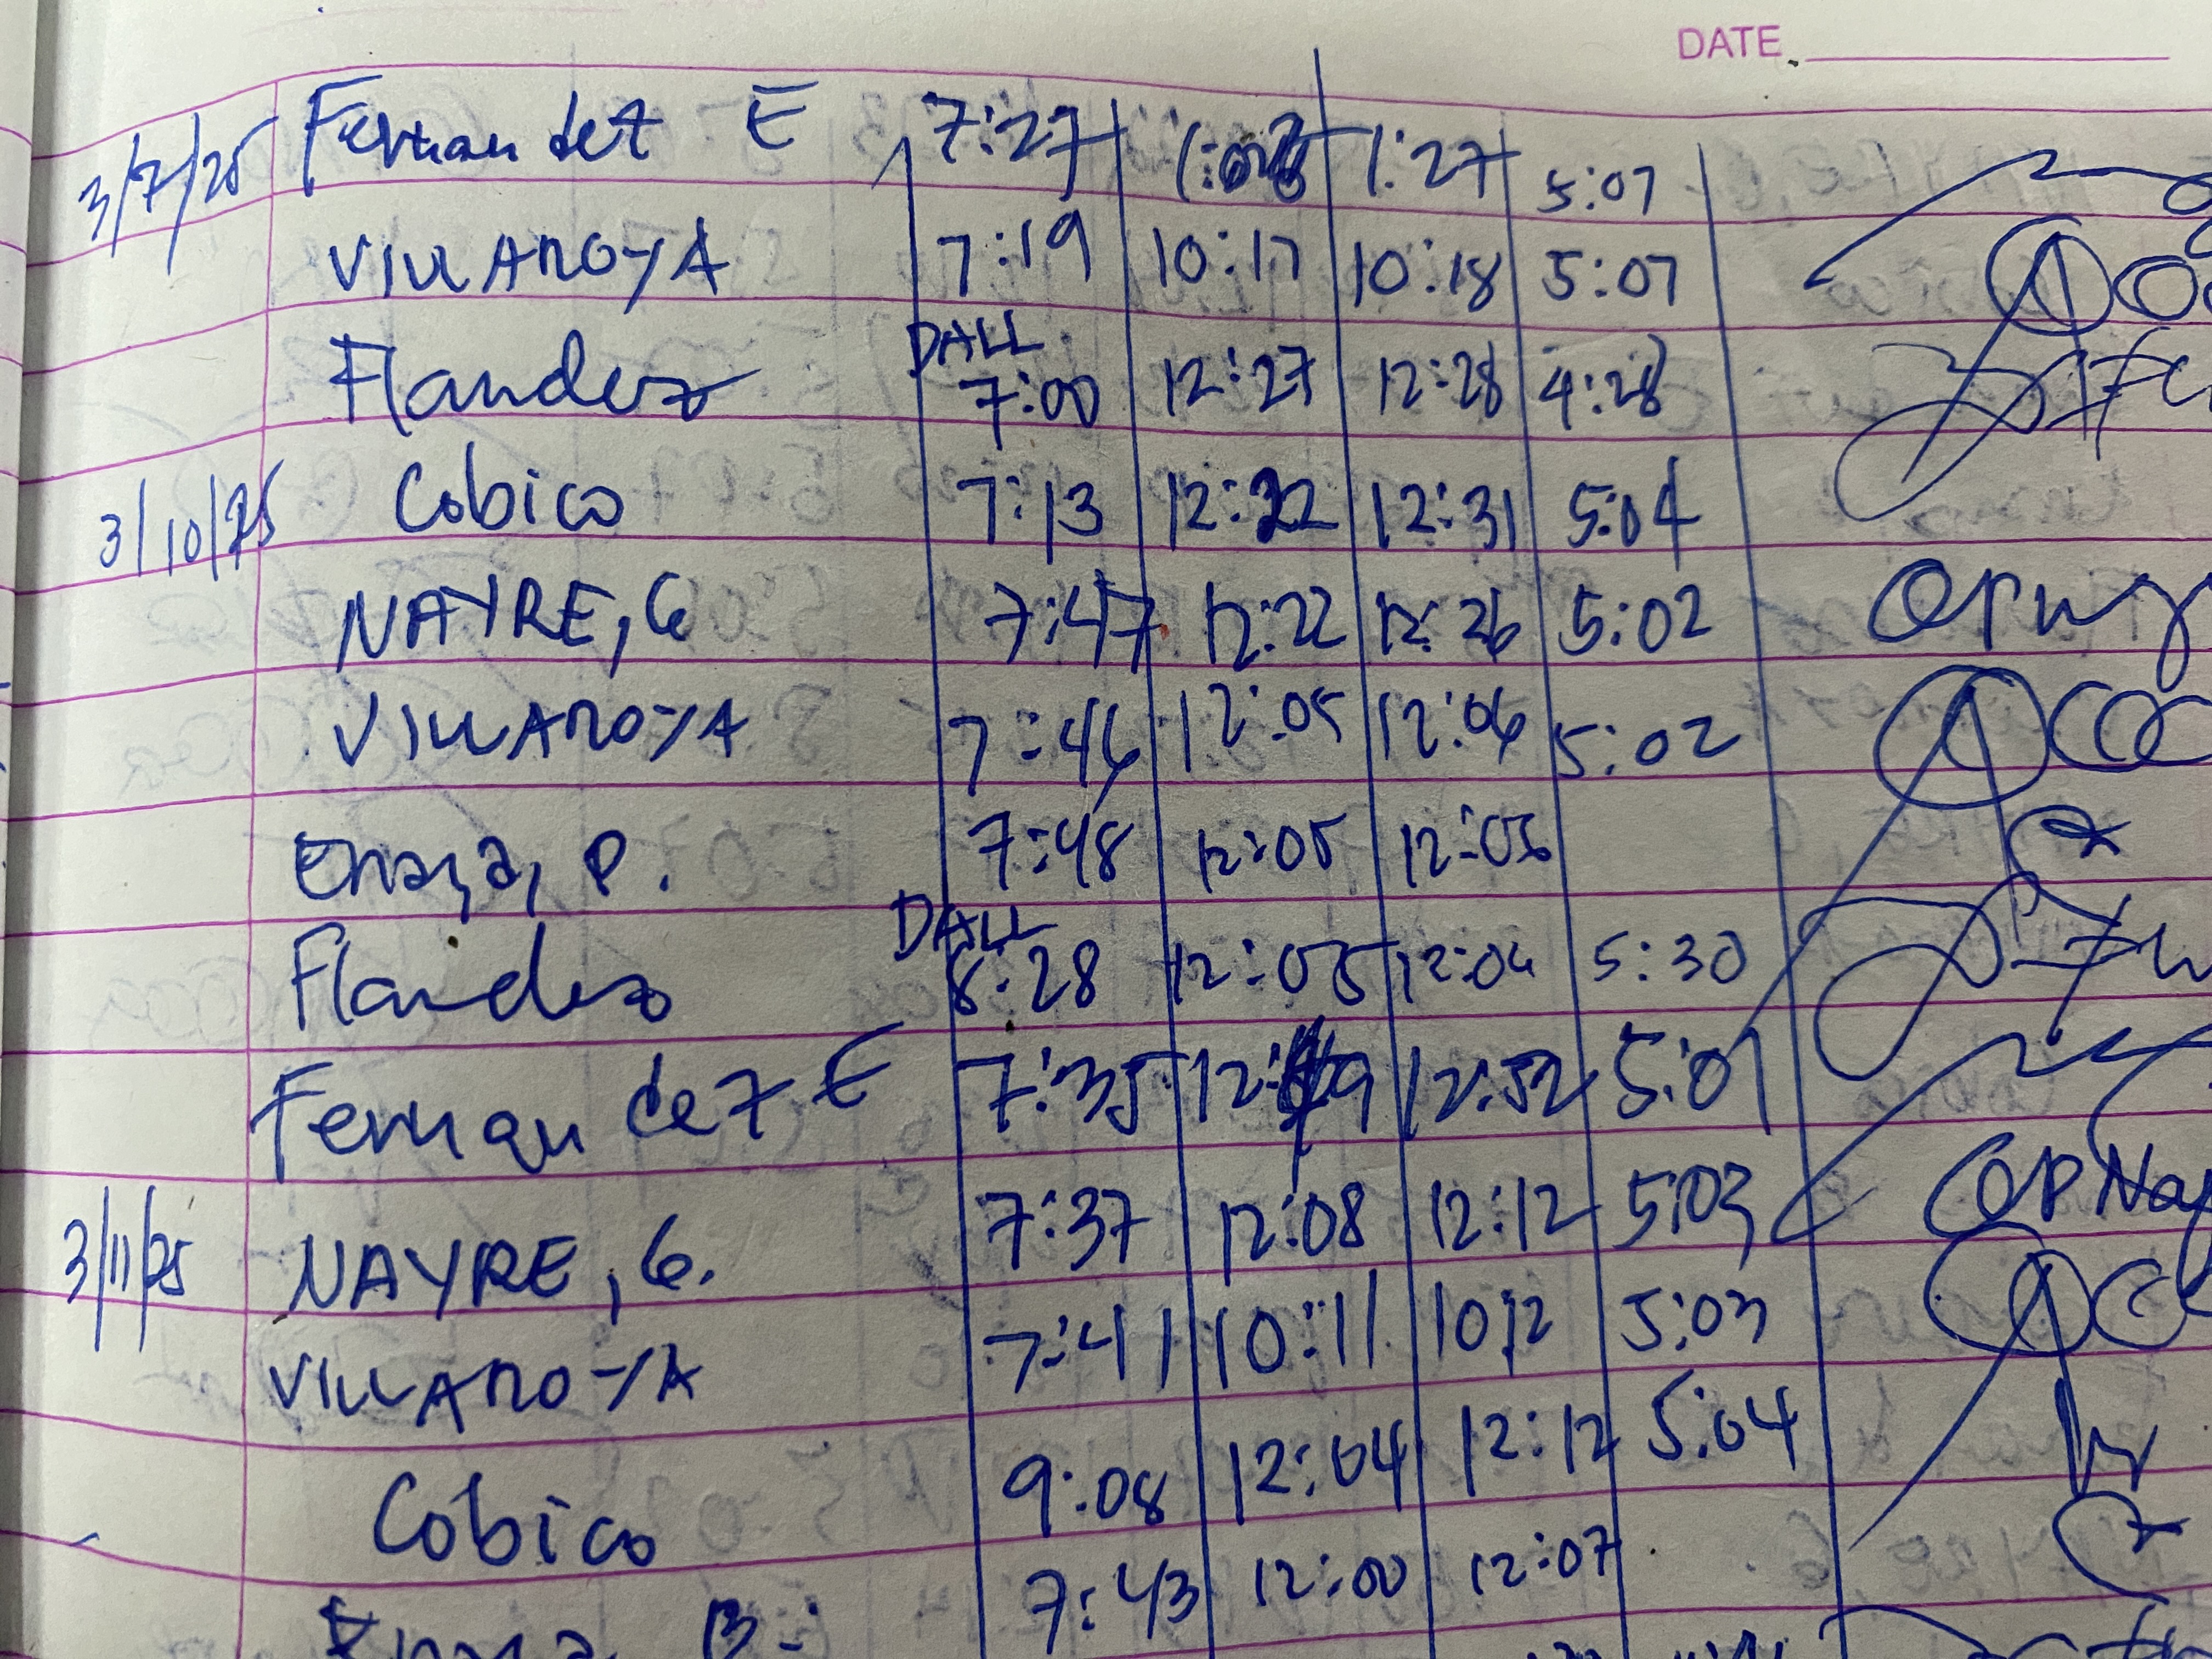 DATE
3/7/25 Fernandez E 7:27 1:27 5:07
VILLANOYA 7:19 10:17 10:18 5:07
DALL
Flandez 7:00 12:27 12:28 4:28
3/10/25 Cobico 7:13 12:22 12:31 5:04
NAYRE, G 7:47 12:22 12:26 5:02
VILLANOYA 7:46 12:05 12:06 5:02
P. 7:48 12:05
DALL
Flandez 8:28 12:03 12:04 5:30
Fernandez E 7:35 12:49 12:52 5:01
3/11/25 NAYRE, G. 7:37 12:08 12:12 5:03
VILLANOYA 7:41 10:11 10:12 5:03
Cobico 9:08 12:04 12:12 5:04
7:43 12:00 12:07